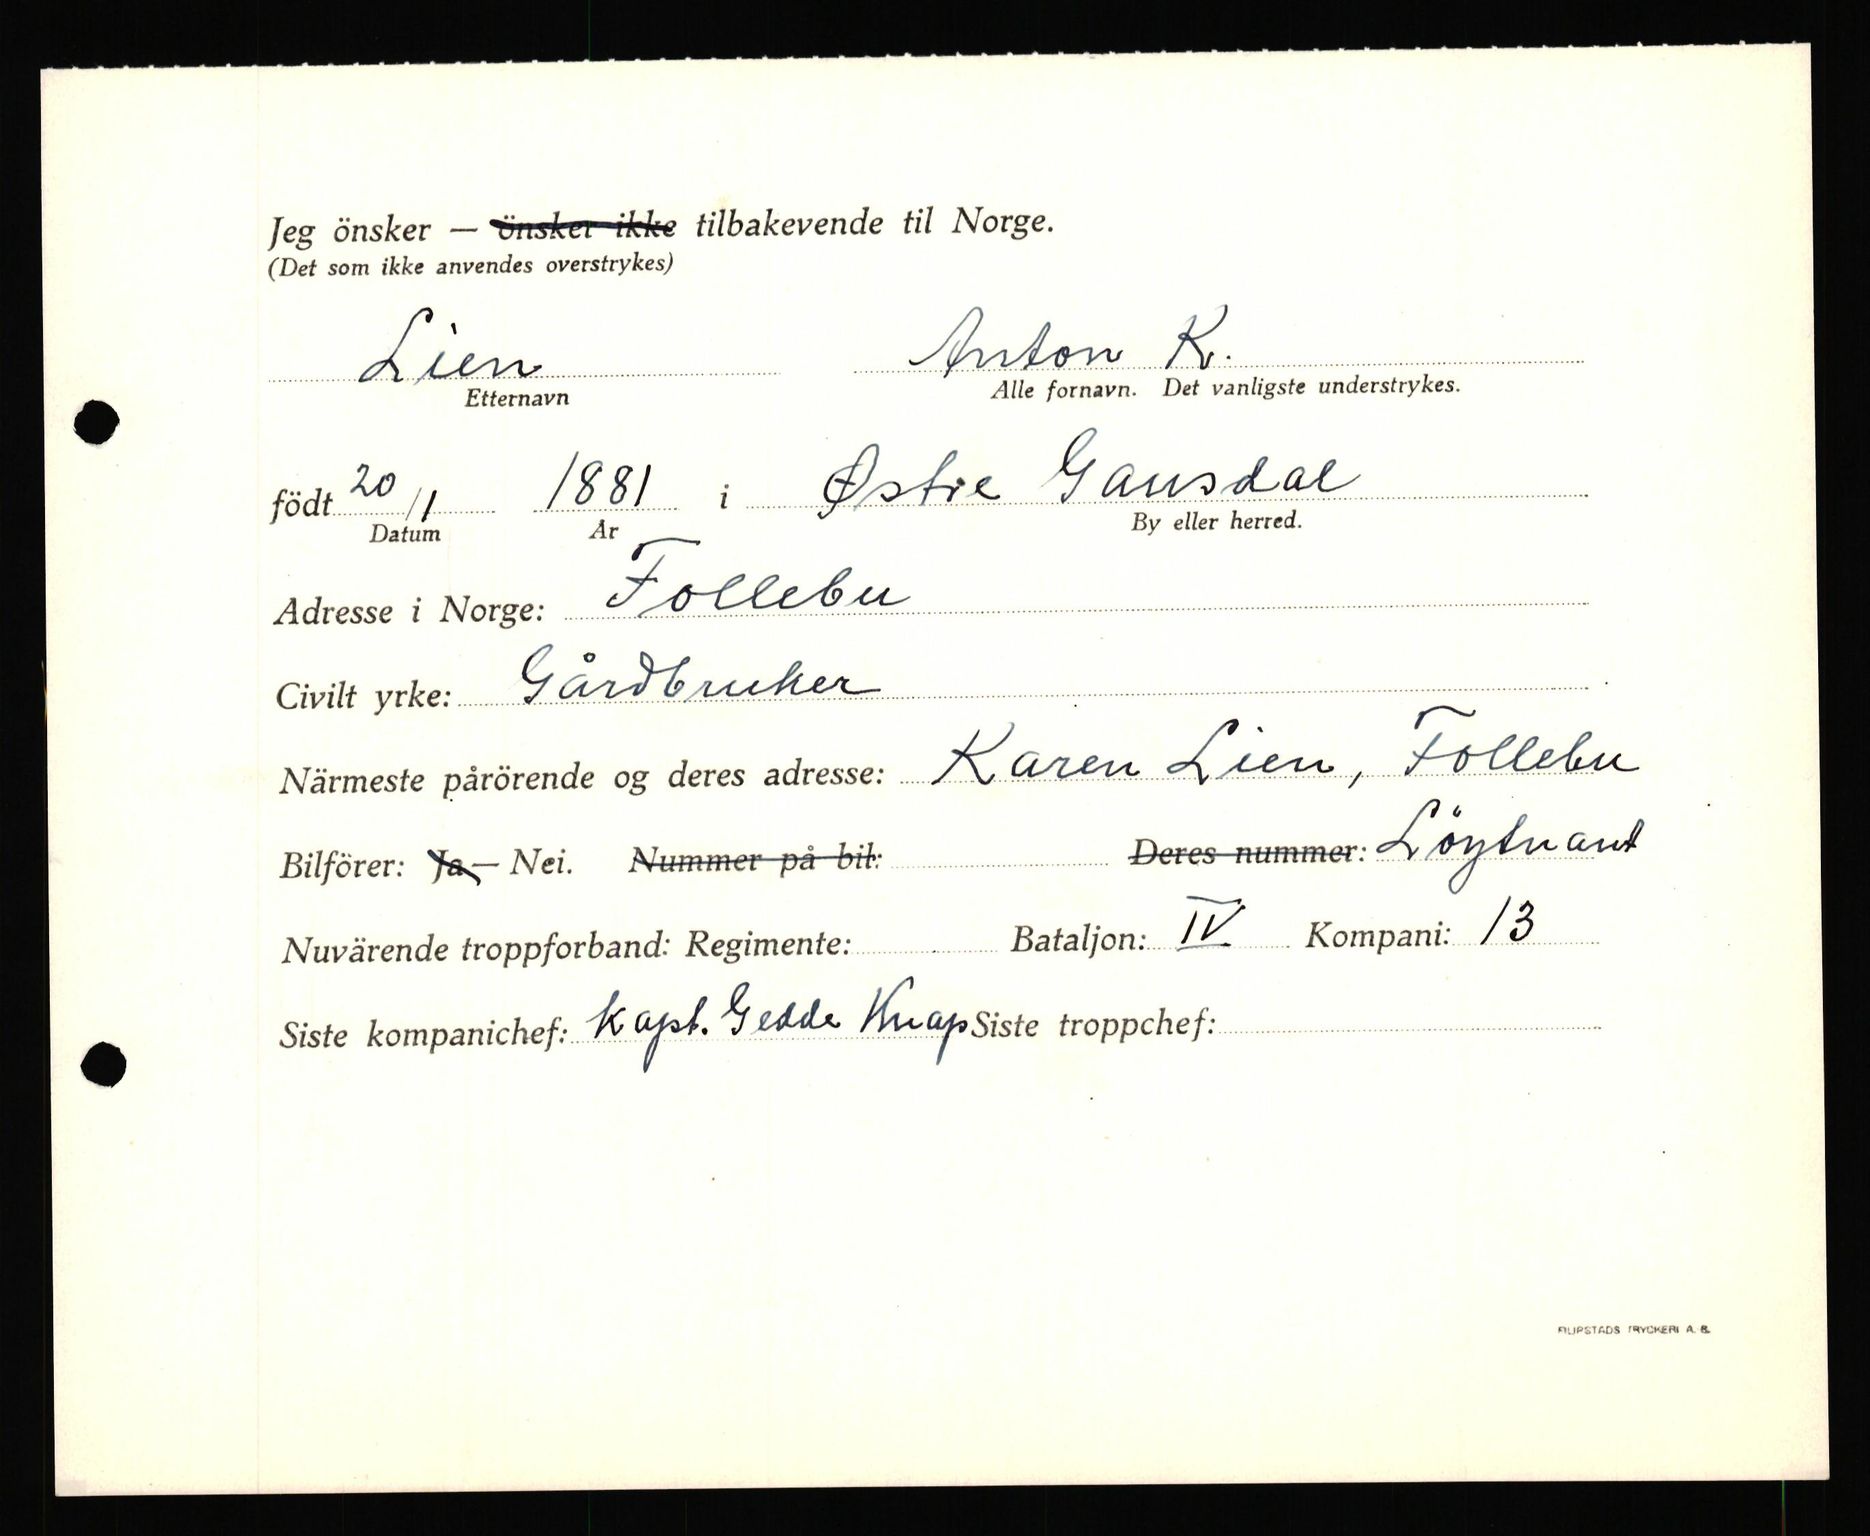 Jeg önsker — önsker ikke tilbakevende til Norge.
(Det som ikke anvendes overstrykes)
Lien Anton K.
Etternavn Alle fornavn. Det vanligste understrykes.
födt 20/1 1881 i Østre Gausdal
Datum Ar By eller herred.
Adresse i Norge: Follebu
Civilt yrke: Gårdbruker
Närmeste pårörende og deres adresse: Karen Lien, Follebu
Bilförer: Ja — Nei. Nummer på bil: Deres nummer: Löytnant
Nuvärende troppforband: Regimente: Bataljon: IV Kompani: 13
Siste kompanichef: Kapt. Gedde Knap Siste troppchef:
FILIPSTADS TRYCKERI A. B.